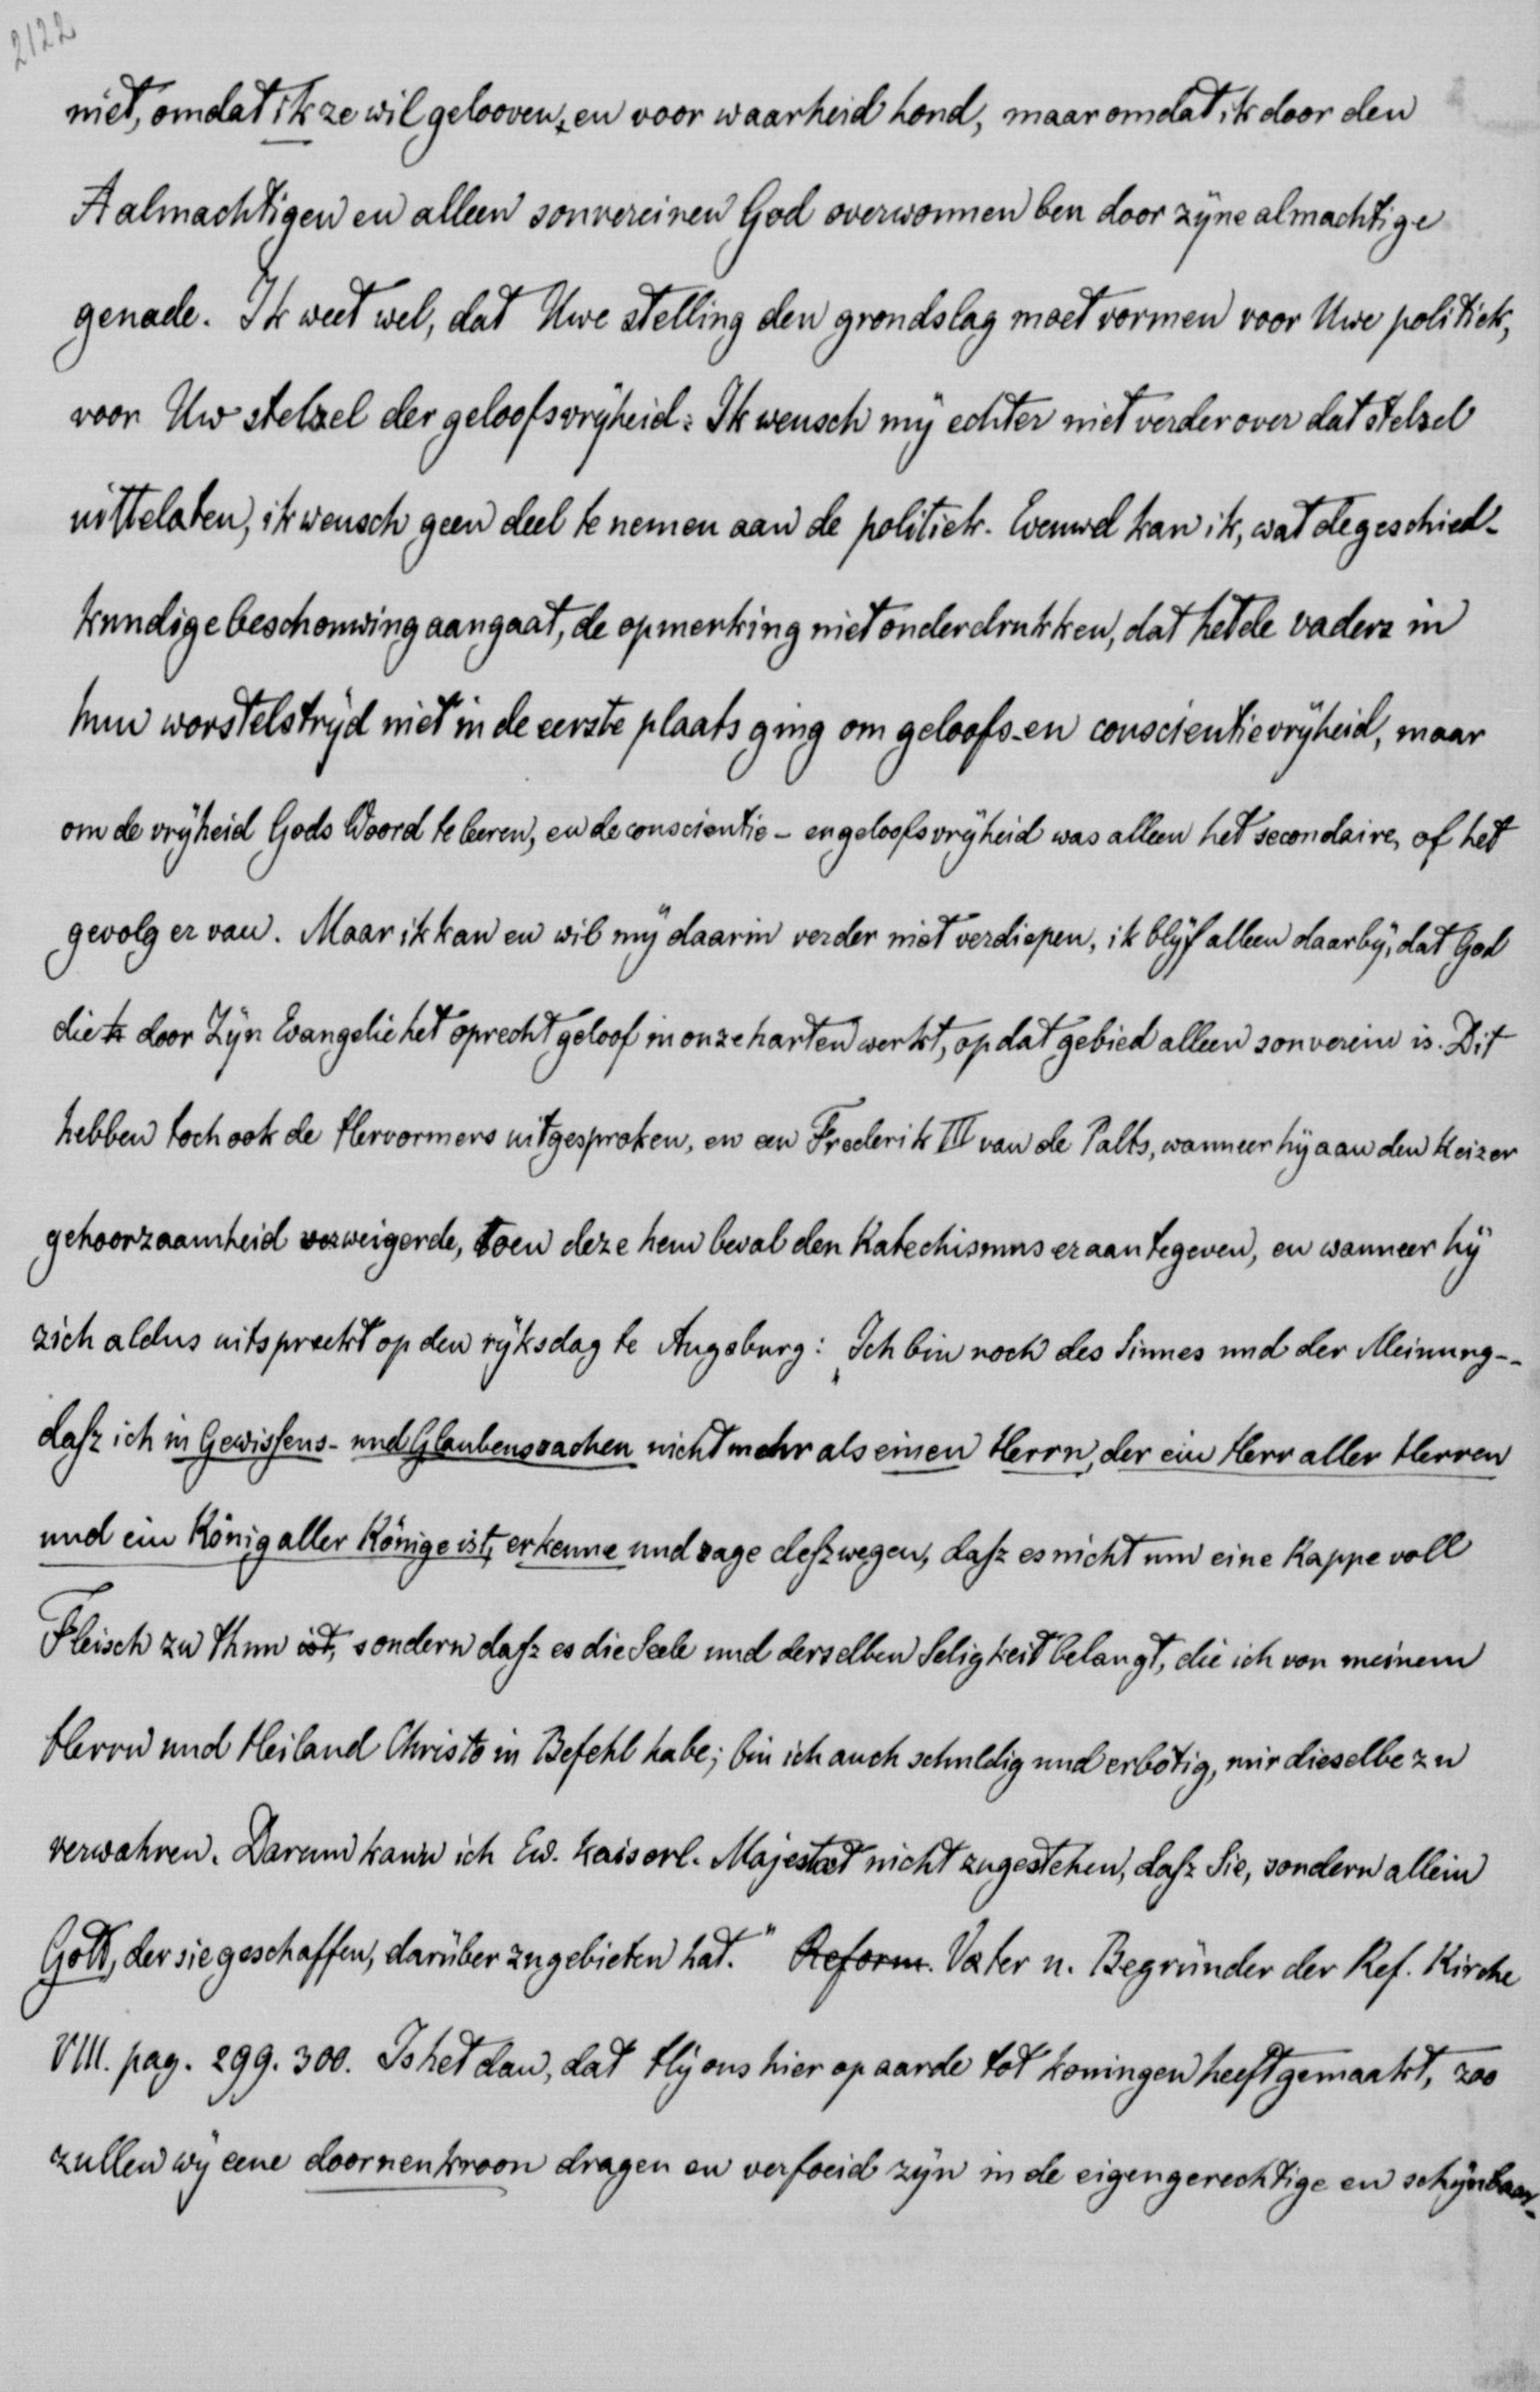 2122
niet, omdat ik ze wil gelooven, en voor waarheid houd, maar omdat ik door den
Aalmachtigen en alleen souvereinen God overwonnen ben door zijne almachtige
genade. Ik weet wel, dat Uwe stelling den grondslag moet vormen voor Uwe politiek,
voor Uw stelsel der geloofsvrijheid: Ik wensch mij echter niet verder over dat stelsel
uittelaten, ik wensch geen deel te nemen aan de politiek. Evenwel kan ik, wat de geschied-
kundige beschouwing aangaat, de opmerking niet onderdrukken, dat het de vaders in
hun worstelstrijd niet in de eerste plaats ging om geloofs- en conscientievrijheid, maar
om de vrijheid Gods Woord te leeren, en de conscientie- en geloofsvrijheid was alleen het secondaire, of het
gevolg er van. Maar ik kan en wil mij daarin verder niet verdiepen, ik blijf alleen daarbij, dat God
die h door Zijn Evangelie het oprecht geloof in onze harten werkt, op dat gebied alleen souverein is. Dit
hebben toch ook de Hervormers uitgesproken, en een Frederik III van de Palts, wanneer hij aan den Keizer
gehoorzaamheid verweigerde, toen deze hem beval den Katechismus eraan tegeven, en wanneer hij
zich aldus uitspreekt op den rijksdag te Augsburg: „Ich bin noch des Sinnes und der Meinung--
dasz ich in Gewissens- und Glaubenssachen nicht mehr als einen Herrn, der ein Herr aller Herren
und ein König aller Könige ist, erkenne und sage deszwegen, dasz es nicht um eine Kappe voll
Fleisch zu thun ist, sondern dasz es die Seele und derselben Seligkeit belangt, die ich von meinem
Herrn und Heiland Christo in Befehl habe; bin ich auch schuldig und erbötig, mir dieselbe zu
verwahren. Darum kann ich Ew. kaiserl. Majestæt nicht zugestehen, dasz Sie, sondern allein
Gott, der sie geschaffen, darüber zu gebieten hat." Reform. Væter u. Begründer der Ref. Kirche
VIII. pag. 299. 300. Is het dan, dat Hij ons hier op aarde tot koningen heeft gemaakt, zoo
zullen wij eene doornenkroon dragen en verfoeid zijn in de eigengerechtige en schijnbaar-